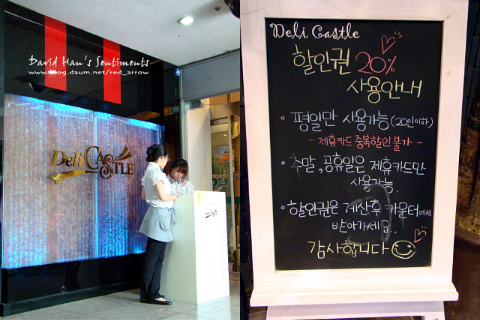 David Han's Sentiments
www.blog.daum.net/red_arrow
Deli CASTLE
Deli Castle
할인권 20%
사용안내
· 평일만 사용가능 (20인이하)
- 제휴카드 중복할인 불가 -
· 주말, 공휴일은 제휴카드만
사용가능
· 할인권은 계산후 카운터에서
받아가세요
감사합니다